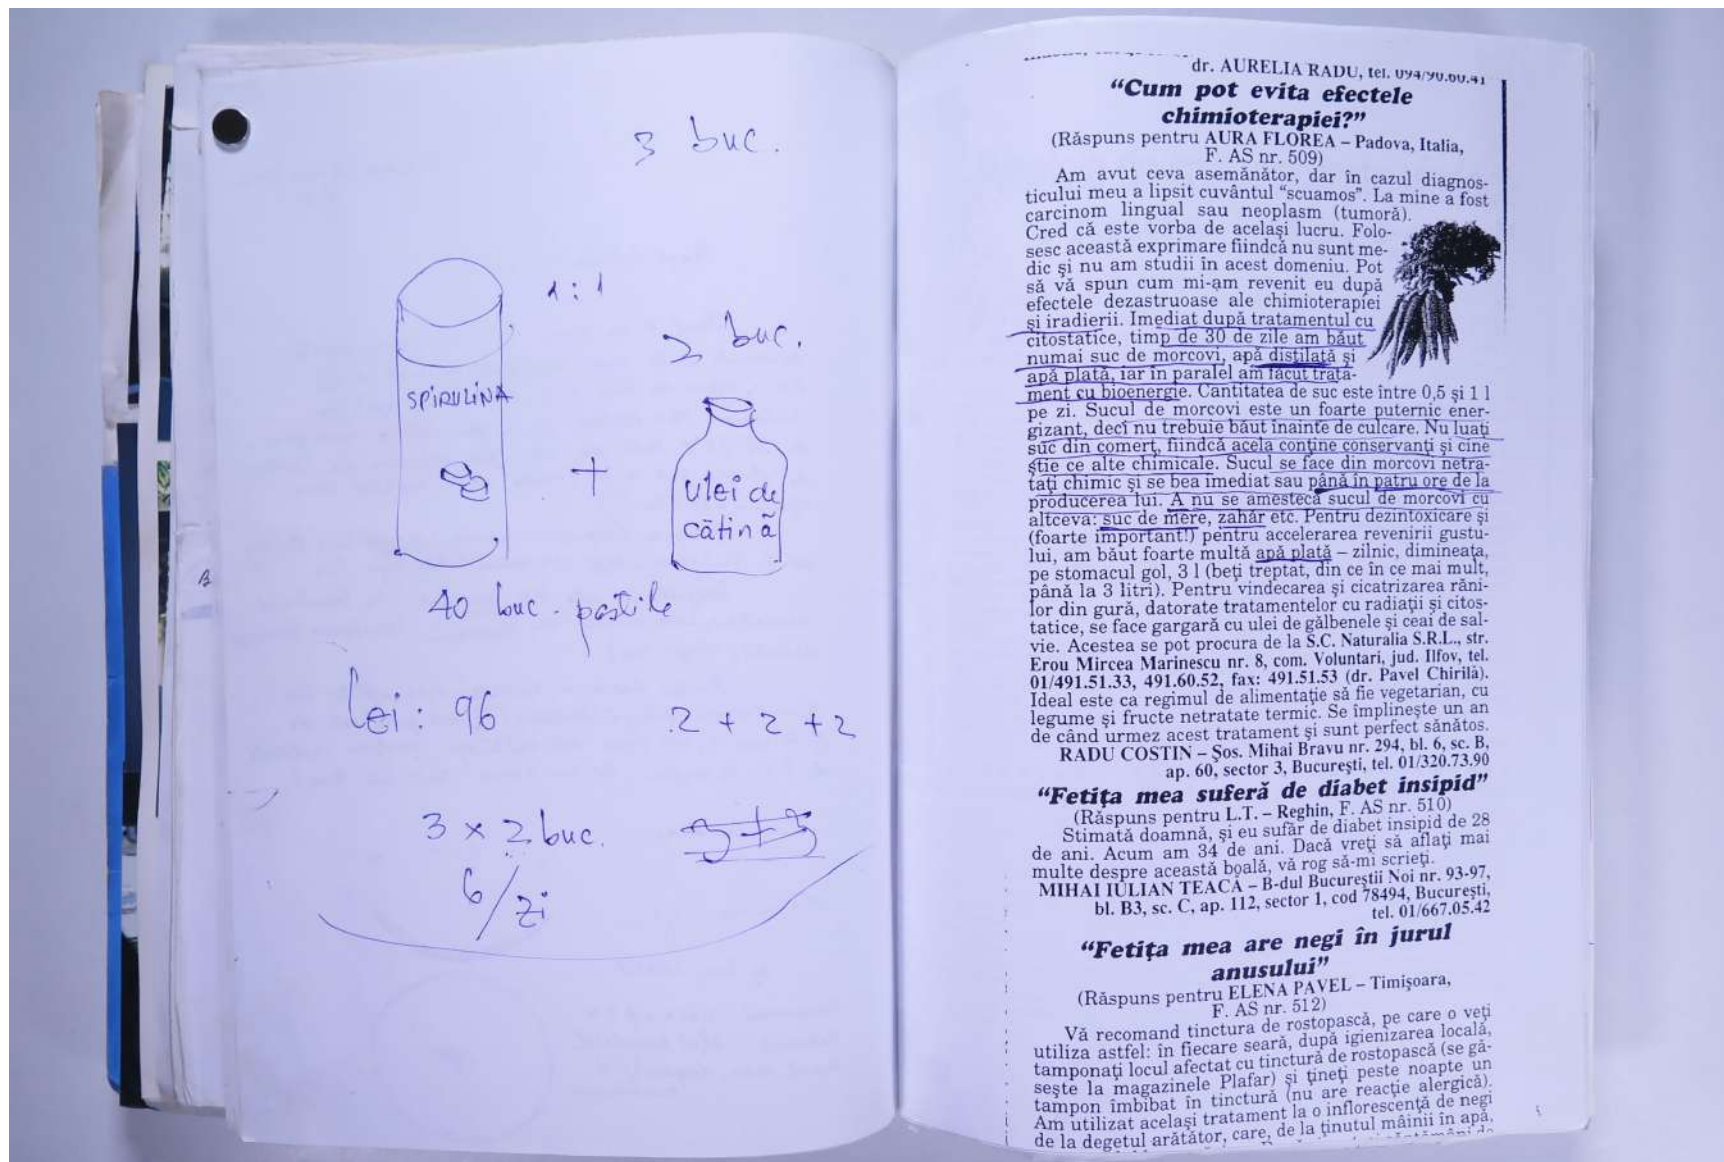 3 buc.
1:1
2 buc.
SPIRULINA
+
ulei de
cătină
40 buc. pastile
lei: 96
2 + 2 + 2
3 x 2 buc.
3+3
6/zi
dr. AURELIA RADU, tel. 094/90.60.41
"Cum pot evita efectele
chimioterapiei?"
(Răspuns pentru AURA FLOREA – Padova, Italia,
F. AS nr. 509)
Am avut ceva asemănător, dar în cazul diagnos-
ticului meu a lipsit cuvântul "scuamos". La mine a fost
carcinom lingual sau neoplasm (tumoră).
Cred că este vorba de acelaşi lucru. Folo-
sesc această exprimare fiindcă nu sunt me-
dic şi nu am studii în acest domeniu. Pot
să vă spun cum mi-am revenit eu după
efectele dezastruoase ale chimioterapiei
şi iradierii. Imediat după tratamentul cu
citostatice, timp de 30 de zile am băut
numai suc de morcovi, apă distilată şi
apă plată, iar în paralel am făcut trata-
ment cu bioenergie. Cantitatea de suc este între 0,5 şi 1 l
pe zi. Sucul de morcovi este un foarte puternic ener-
gizant, deci nu trebuie băut înainte de culcare. Nu luaţi
suc din comerţ, fiindcă acela conţine conservanţi şi cine
ştie ce alte chimicale. Sucul se face din morcovi netra-
taţi chimic şi se bea imediat sau până în patru ore de la
producerea lui. A nu se amesteca sucul de morcovi cu
altceva: suc de mere, zahăr etc. Pentru dezintoxicare şi
(foarte important!) pentru accelerarea revenirii gustu-
lui, am băut foarte multă apă plată – zilnic, dimineaţa,
pe stomacul gol, 3 l (beţi treptat, din ce în ce mai mult,
până la 3 litri). Pentru vindecarea şi cicatrizarea răni-
lor din gură, datorate tratamentelor cu radiaţii şi citos-
tatice, se face gargară cu ulei de gălbenele şi ceai de sal-
vie. Acestea se pot procura de la S.C. Naturalia S.R.L., str.
Erou Mircea Marinescu nr. 8, com. Voluntari, jud. Ilfov, tel.
01/491.51.33, 491.60.52, fax: 491.51.53 (dr. Pavel Chirilă).
Ideal este ca regimul de alimentaţie să fie vegetarian, cu
legume şi fructe netratate termic. Se împlineşte un an
de când urmez acest tratament şi sunt perfect sănătos.
RADU COSTIN – Şos. Mihai Bravu nr. 294, bl. 6, sc. B,
ap. 60, sector 3, Bucureşti, tel. 01/320.73.90
"Fetiţa mea suferă de diabet insipid"
(Răspuns pentru L.T. – Reghin, F. AS nr. 510)
Stimată doamnă, şi eu sufăr de diabet insipid de 28
de ani. Acum am 34 de ani. Dacă vreţi să aflaţi mai
multe despre această boală, vă rog să-mi scrieţi.
MIHAI IULIAN TEACĂ – B-dul Bucureştii Noi nr. 93-97,
bl. B3, sc. C, ap. 112, sector 1, cod 78494, Bucureşti,
tel. 01/667.05.42
"Fetiţa mea are negi în jurul
anusului"
(Răspuns pentru ELENA PAVEL – Timişoara,
F. AS nr. 512)
Vă recomand tinctura de rostopască, pe care o veţi
utiliza astfel: în fiecare seară, după igienizarea locală,
tamponaţi locul afectat cu tinctură de rostopască (se gă-
seşte la magazinele Plafar) şi ţineţi peste noapte un
tampon îmbibat în tinctură (nu are reacţie alergică).
Am utilizat acelaşi tratament la o inflorescenţă de negi
de la degetul arătător, care, de la ţinutul mâinii în apă,